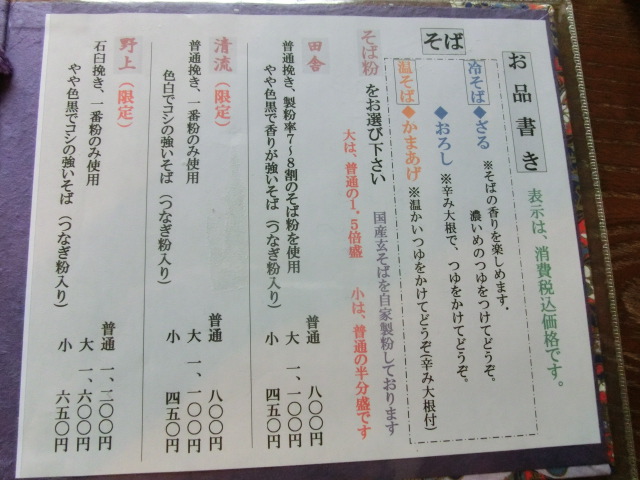 お品書き
表示は、消費税込価格です。
そば
冷そば◆ざる
※そばの香りを楽しめます.
濃いめのつゆをつけてどうぞ。
◆おろし
※辛み大根で、つゆをかけてどうぞ。
温そば◆かまあげ
※温かいつゆをかけてどうぞ(辛み大根付)
そば粉をお選び下さい
国産玄そばを自家製粉しております
大は、普通の1.5倍盛
小は、普通の半分盛です
田舎
普通挽き、製粉率7～8割のそば粉を使用
やや色黒で香りが強いそば(つなぎ粉入り)
普通 八〇〇円
大 一、一〇〇円
小 四五〇円
清流(限定)
普通挽き、一番粉のみ使用
色白でコシの強いそば(つなぎ粉入り)
普通 八〇〇円
大 一、一〇〇円
小 四五〇円
野上(限定)
石臼挽き、一番粉のみ使用
やや色黒でコシの強いそば(つなぎ粉入り)
普通 一、二〇〇円
大 一、六〇〇円
小 六五〇円